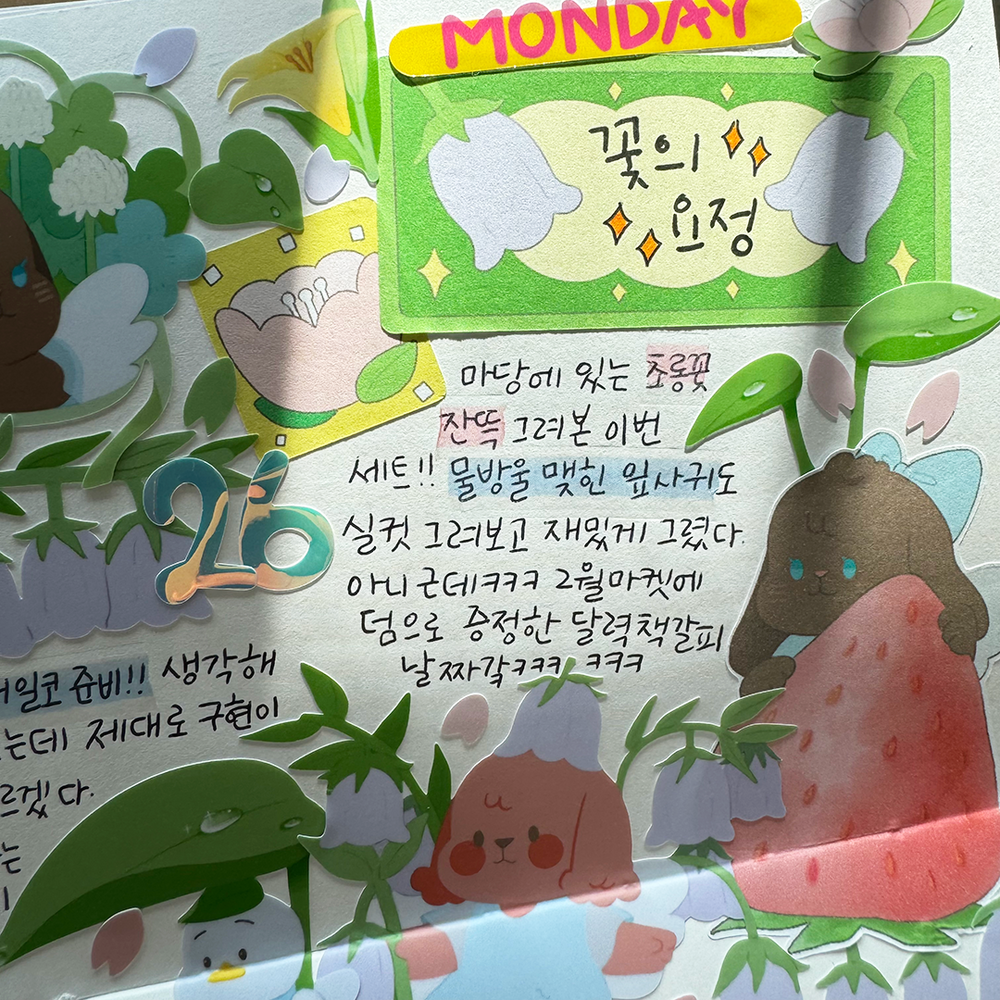 MONDAY
꽃의
요정
마당에 있는 초롱꽃
잔뜩 그려본 이번
세트!! 물방울 맺힌 잎사귀도
실컷 그려보고 재밌게 그렸다.
아니 근데ㅋㅋㅋ 2월마켓에
덤으로 증정한 달력책갈피
날짜갘ㅋㅋㅋ ㅋㅋㅋ
26
일코 준비!! 생각해
는데 제대로 구현이
르겠다.
는